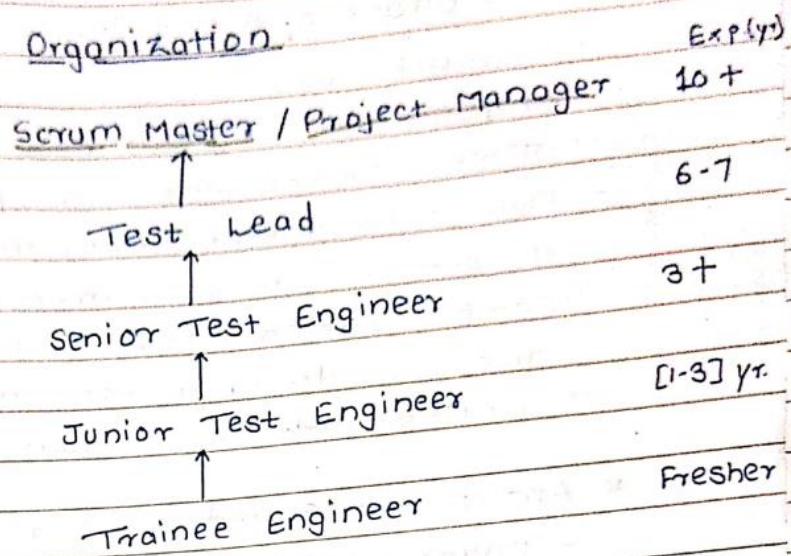 Organization Exp(yr)
Scrum Master / Project Manager 10 +
↑
Test Lead 6-7
↑
Senior Test Engineer 3+
↑
Junior Test Engineer [1-3] yr.
↑
Trainee Engineer Fresher